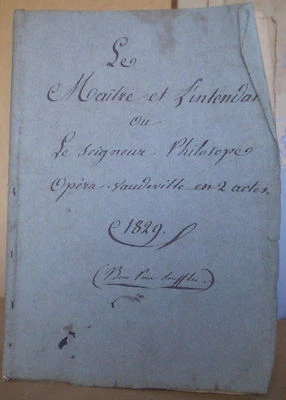 Le
Maitre et L'intendan
ou
Le Seigneur Philosope
Opéra-Vaudeville en 2 actes.
1829.
(Bon Pour Souffler.)